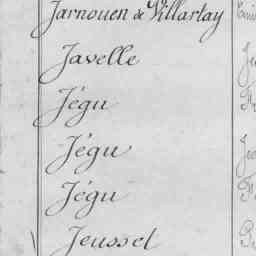 Jarnouen de Villartay
Javelle
Jégu
Jégu
Jégu
Jeusset